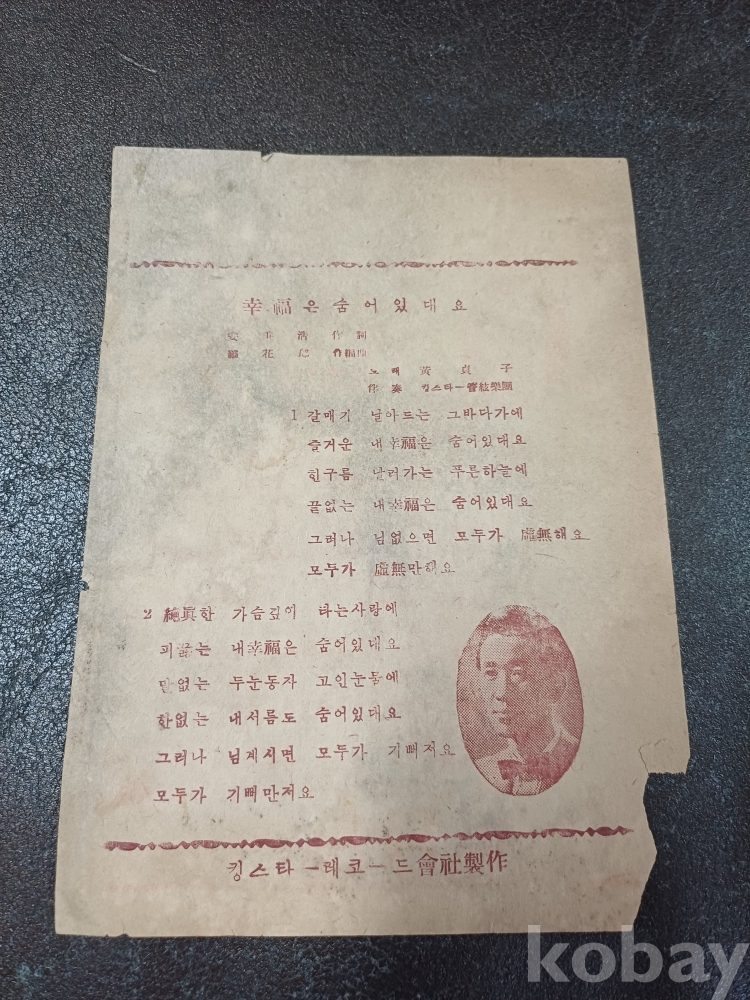 幸福은숨어있대요
浩 作詞
花 作編曲
노래 黃貞子
伴奏 킹스타ー管絃樂團
1 갈매기 날아드는 그바다가에
즐거운 내幸福은 숨어있대요
힌구름 날러가는 푸른하늘에
끝없는 내幸福은 숨어있대요
그러나 님없으면 모두가 虛無해요
모두가 虛無만해요
2 純眞한 가슴깊이 타는사랑에
피끓는 내幸福은 숨어있대요
말없는 두눈동자 고인눈동에
한없는 내서름도 숨어있대요
그러나 님게시면 모두가 기뻐저요
모두가 기뻐만저요
킹스타ー레코ード會社製作
kobay